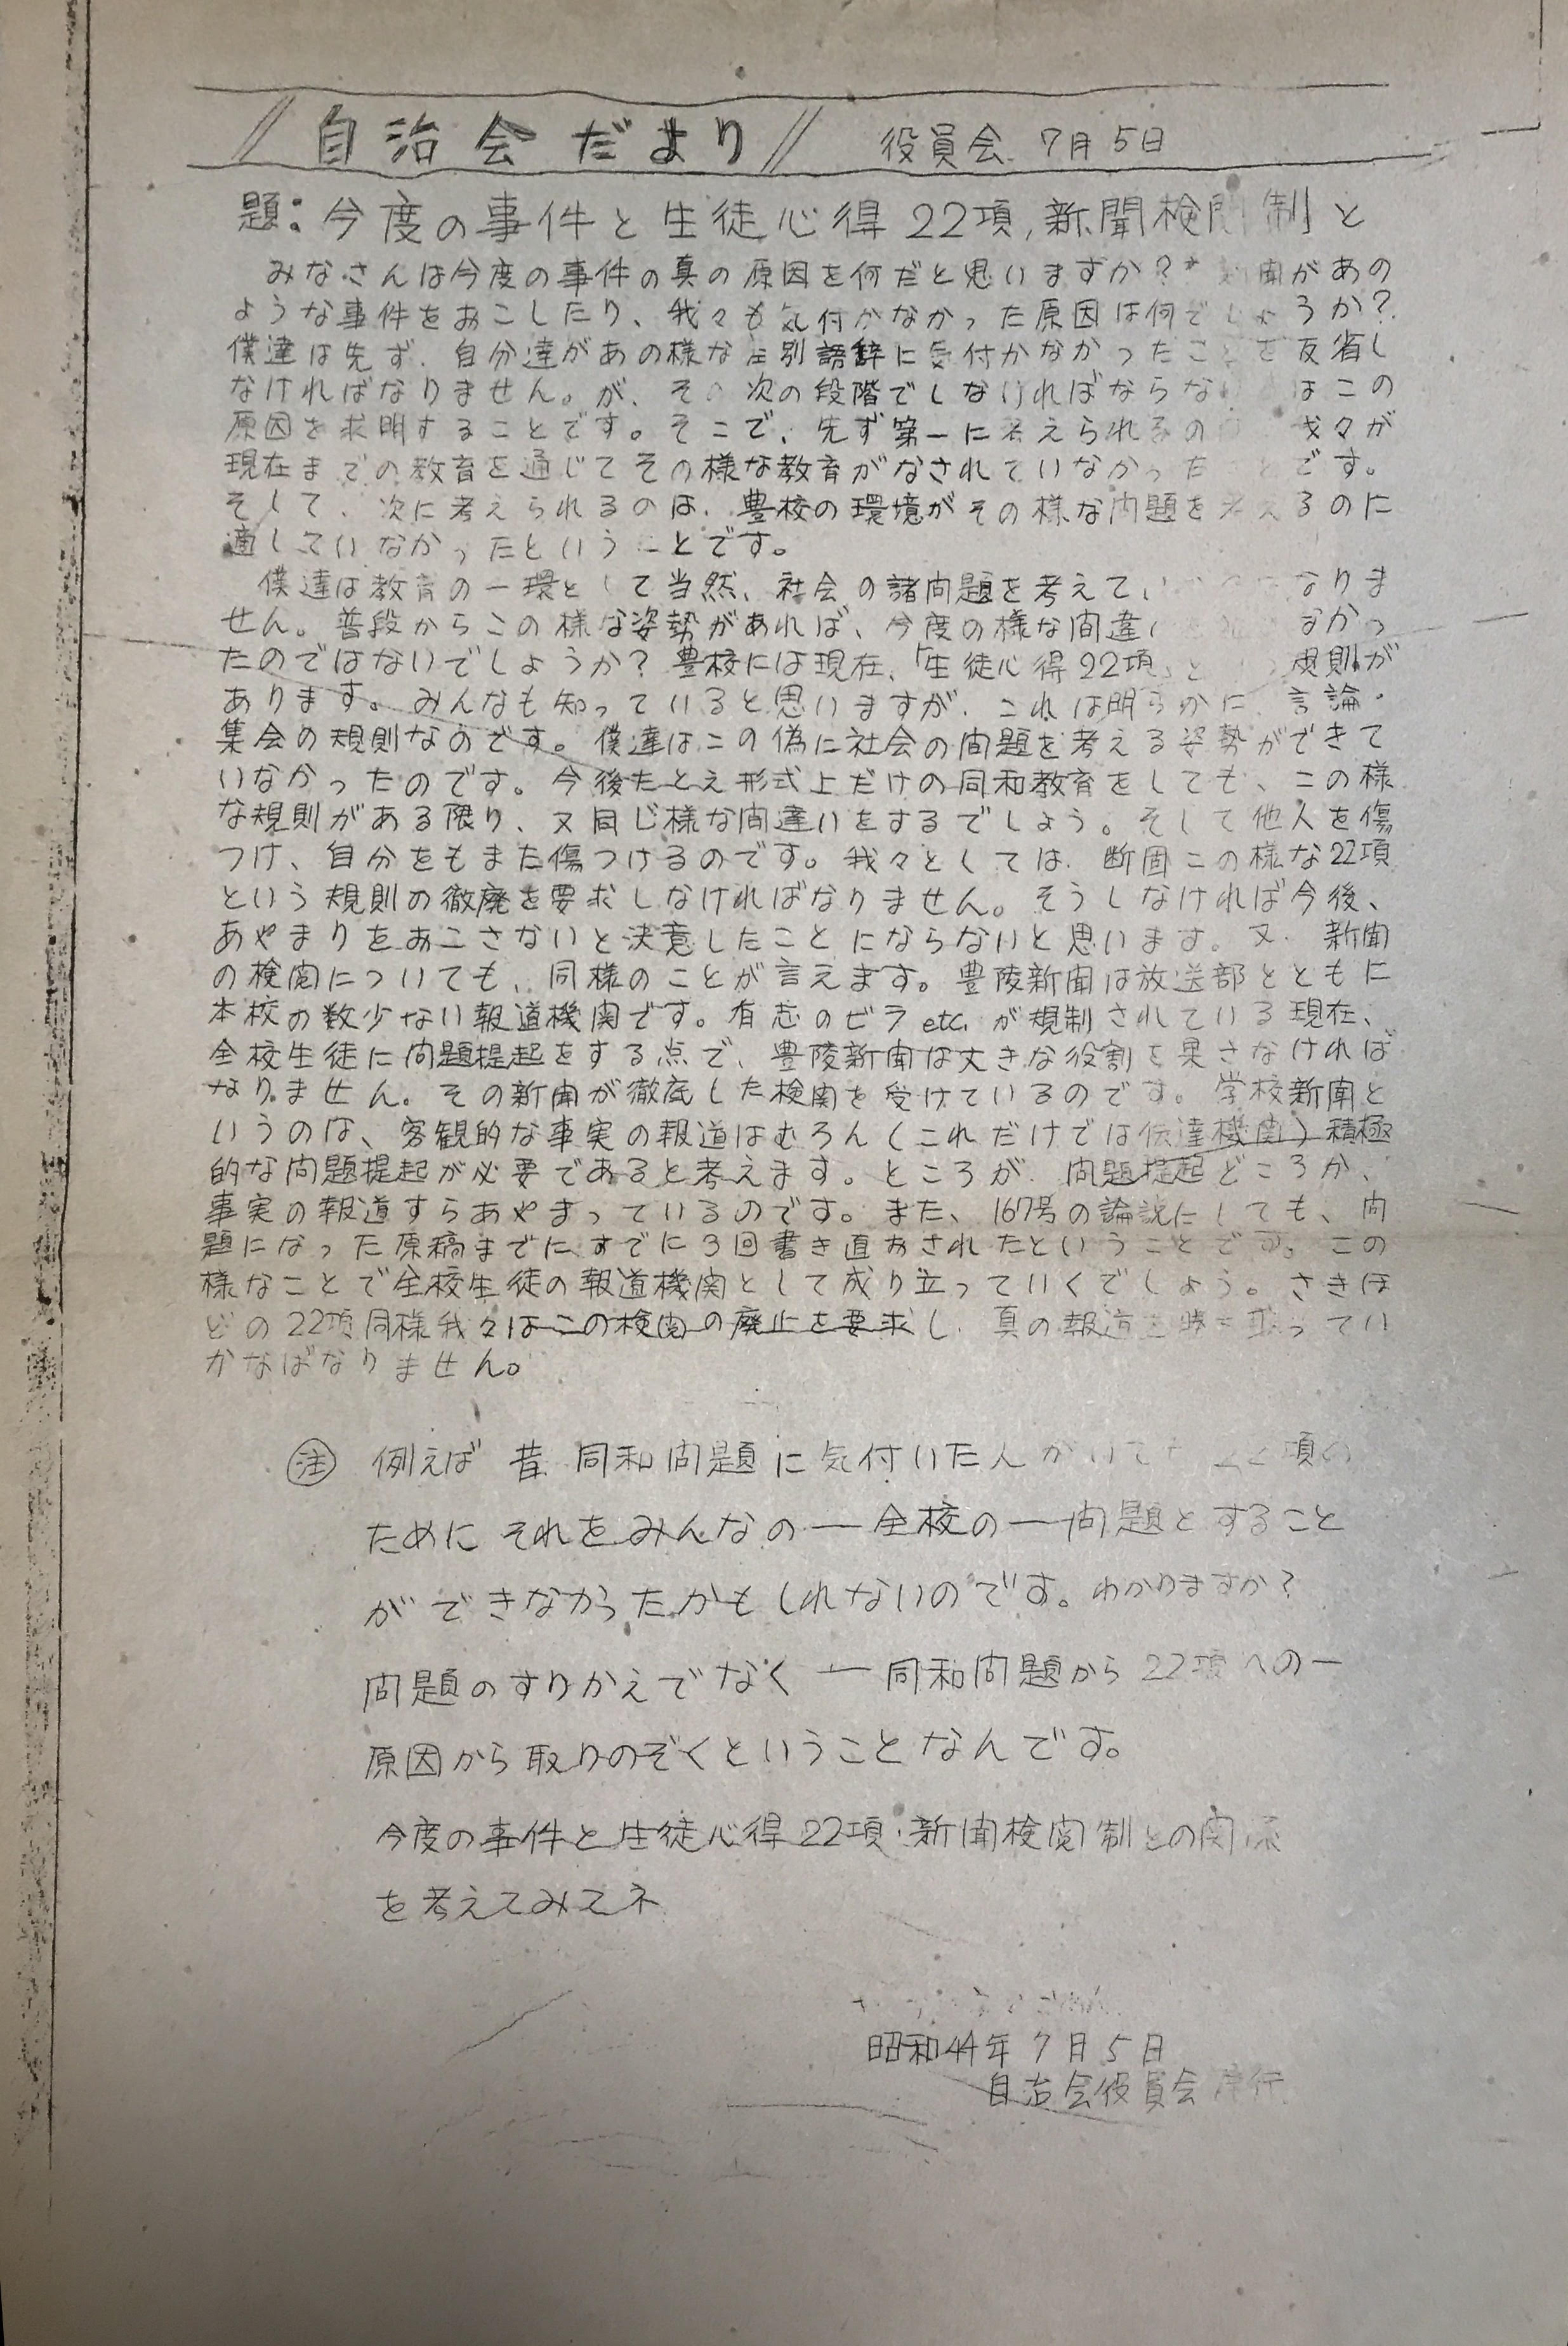 自治会だより 役員会 7月5日
題:今度の事件と生徒心得22項,新聞検閲制と
みなさんは今度の事件の真の原因を何だと思いますか?* 新聞があの
ような事件をおこしたり、我々も気付かなかった原因は何でしょうか?
僕達は先ず、自分達があの様な差別語辞に気付かなかったことを反省し
なければなりません。が、その次の段階でしなければならない はこの
原因を求明することです。そこで、先ず第一に考えられるの 我々が
現在までの教育を通じてその様な教育がなされていなかった とです。
そして、次に考えられるのは、豊校の環境がその様な問題を考えるのに
適していなかったということです。
僕達は教育の一環として当然、社会の諸問題を考えて なりま
せん。普段からこの様な姿勢があれば、今度の様な間違い なかっ
たのではないでしょうか?豊校には現在、「生徒心得22項」と 規則が
あります。みんなも知っていると思いますが、これは明らかに、言論・
集会の規則なのです。僕達はこの偽に社会の問題を考える姿勢ができて
いなかったのです。今後たとえ形式上だけの同和教育をしても、この様
な規則がある限り、又同じ様な間違いをするでしょう。そして他人を傷
つけ、自分をもまた傷つけるのです。我々としては、断固この様な22項
という規則の徹廃を要求しなければなりません。そうしなければ今後、
あやまりをおこさないと決意したことにならないと思います。又、新聞
の検閲についても、同様のことが言えます。豊陵新聞は放送部とともに
本校の数少ない報道機関です。有志のビラetc.が規制されている現在、
全校生徒に問題提起をする点で、豊陵新聞は大きな役割を果さなければ
なりません。その新聞が徹底した検閲を受けているのです。学校新聞と
いうのは、客観的な事実の報道はむろん(これだけでは伝達機関)積極
的な問題提起が必要であると考えます。ところが、問題提起どころか、
事実の報道すらあやまっているのです。また、167号の論説にしても、問
題になった原稿までにすでに3回書き直おされたということです。この
様なことで全校生徒の報道機関として成り立っていくでしょう。さきほ
どの22項同様我々はこの検閲の廃止を要求し、真の報道を勝ち取ってい
かなばなりません。
注 例えば 昔 同和問題に気付いた人がいて 項の
ために それをみんなの―全校の―問題とすること
ができなかったかもしれないのです。わかりますか?
問題のすりかえでなく ―同和問題から22項への―
原因から取りのぞくということなんです。
今度の事件と生徒心得22項・新聞検閲制との関係
を考えてみてネ
昭和44年7月5日
自治会役員会 発行